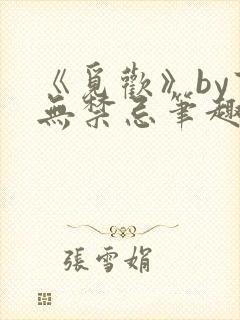 《覓歡》by
無禁忌筆趣
張雪娟